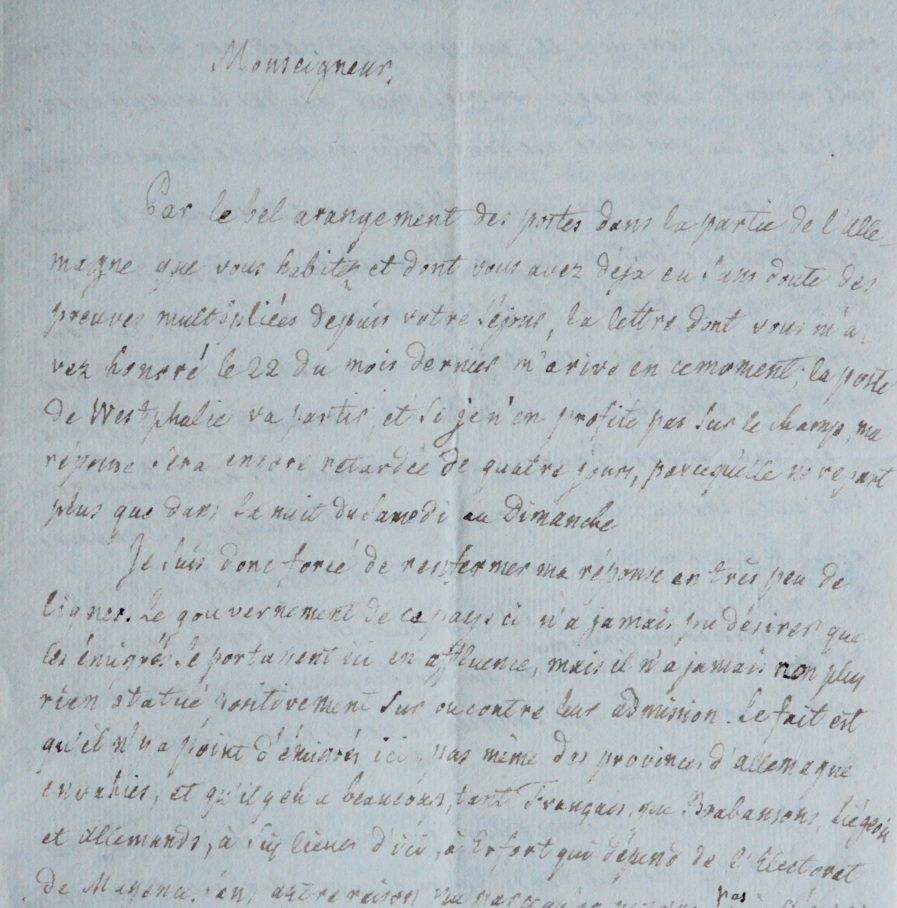 Monseigneur,
Par le bel arangement des postes dans la partie de l'Alle-
magne que vous habitéz et dont vous avez déja eu sans doute des
preuves multipliées depuis votre séjour, la lettre dont vous m'a-
vez honorré le 22 du mois dernier m'arive en ce moment; la poste
de Westphalie va partir et si je n'en profite pas sur le champ, ma
réponse sera encore retardée de quatre jours, parcequ'elle ne repart
plus que dans la nuit du Samedi au Dimanche
Je suis donc forcé de renfermer ma réponse en très peu de
lignes. Le gouvernement de ce pays ci n'a jamais pu désirer que
les émigrés se portassent ici en affluence, mais il n'a jamais non plus
rien statué positivement sur ou contre leur admission. Le fait est
qu'il n'y a point d'émigrés ici, pas même des provinces d'allemagne
envahies, et qu'il y en a beaucoup, tant Français, que Brabansons, Liégeois
et Allemands, à six lieues d'ici, à Erfort qui dépend de l'Electorat
de Mayence. sans autre raison pas